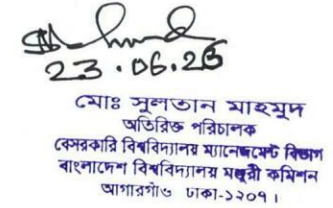 23.06.26
মোঃ সুলতান মাহমুদ
অতিরিক্ত পরিচালক
বেসরকারি বিশ্ববিদ্যালয় ম্যানেজমেন্ট বিভাগ
বাংলাদেশ বিশ্ববিদ্যালয় মঞ্জুরী কমিশন
আগারগাঁও ঢাকা-১২০৭।